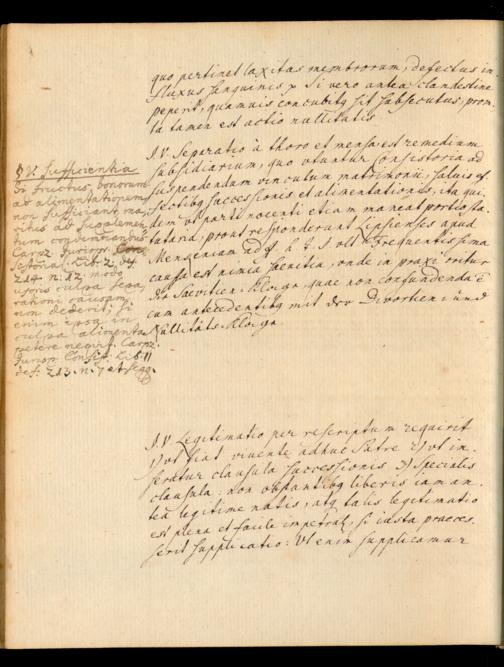 quo pertinet laxitas membrorum, defectus in
fluxus sanguinis p Si vero antea clandestine
peperit, quamvis concubitq sit subsecutus, prom
ta tamen est actio nullitatis
§. V. Separatio à thoro et mensa, est remedium
subsidiarium, quo utuntur Consistoria ad
suspendendum vinculum matrimonii, salvis ef
fectibq successionis et alimentationis, ita qui
dem ut portio nocenti etiam maneat portio sta
tutaria, prout responderunt Lipsienses apud
Frequentissima
causa est nimia saevitia, unde in praxi oritur
die Saevitien Klage, quae non confundenda e
cum antecedentibq mit der Divortien und
Nullitäts Klage
§ V. Sufficientia
Si fructus bonorum
ad alimentationem
non sufficiant, ma,
ritus ad supplemen
tum conveniendus
Carpz. Jurispr. Con
sistorial. Lib. 2. def.
214. n. 12. modo
uxoris culpa sepa,
rationi causam
non dederit, si
enim ipsa in
culpa alimenta
petere nequit. Carpz.
Jurispr. Consist. Lib. II
def. 213. n. 7 et seqq.
§. V. Legitimatio per rescriptum requirit
1) ut fiat vivente adhuc Patre 2) ut in,
seratur clausula successionis 3) Specialis
clausula: non obstantibq liberis iam an,
tea legitime natis, atq talis legitimatio
est plena et facile impetrat, si iusta praeces,
serit supplicatio: Ut enim supplicamur